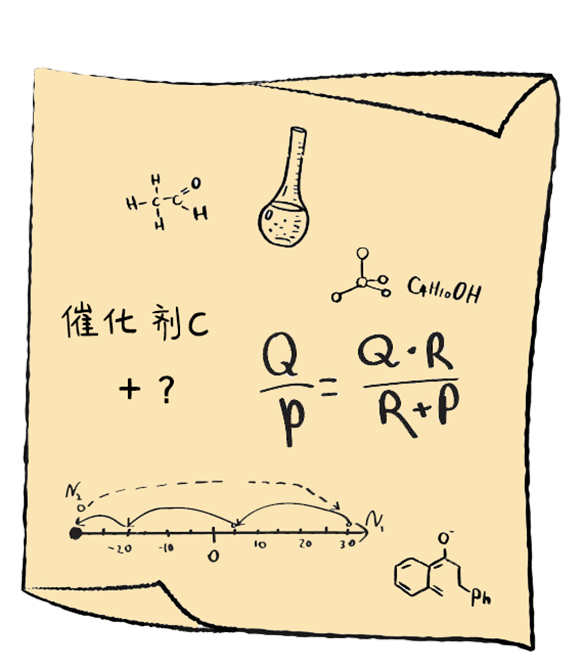 H
H-C-C=O
H H
C4H10OH
催化剂C
+ ?
Q/p = Q·R/R+P
N2
N1
-20 -10 0 10 20 30
O-
Ph